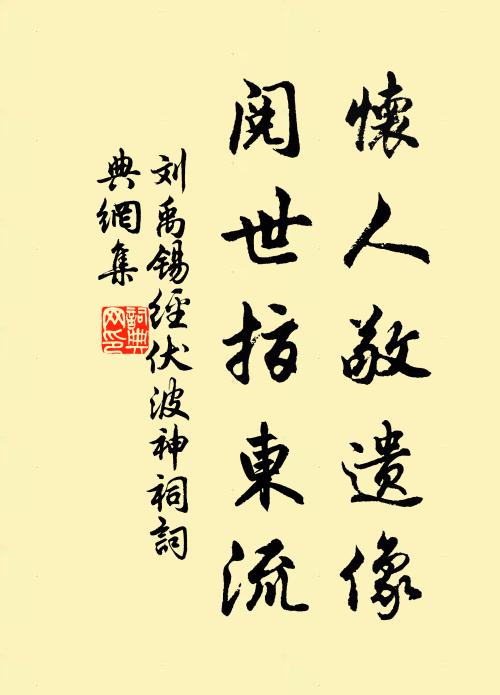 懷人敬遺像
閱世指東流
刘禹锡經伏波神祠詞
典網集
詞典
网印